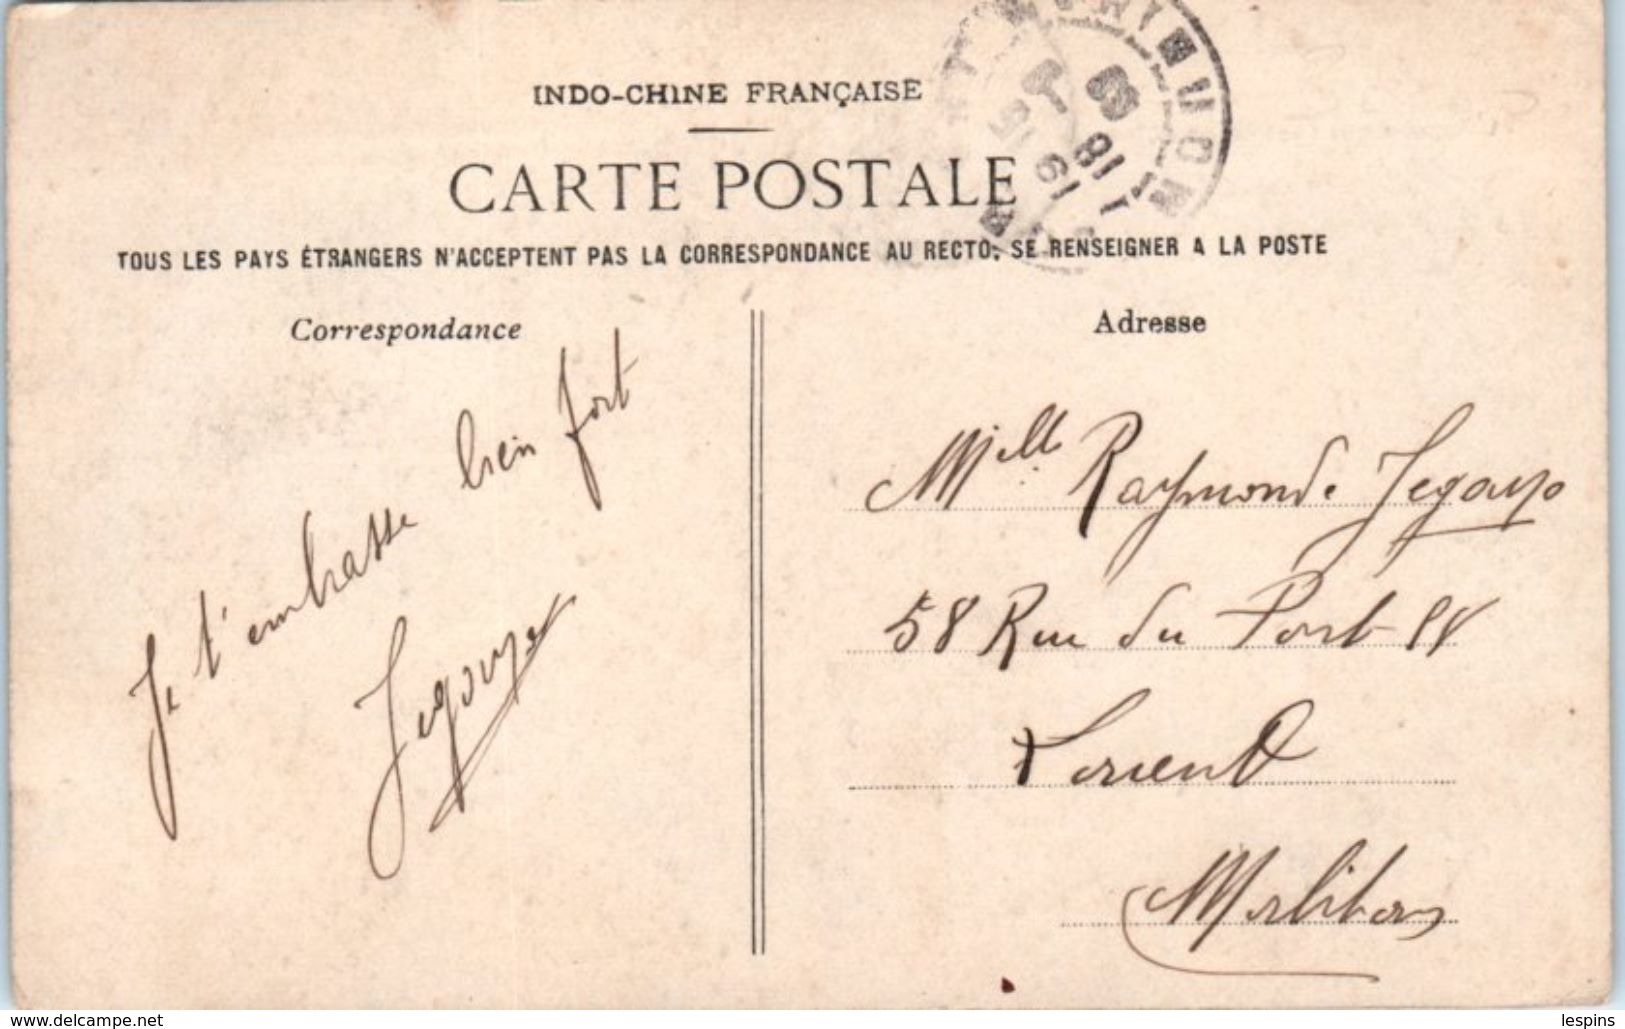 INDO-CHINE FRANÇAISE
CARTE POSTALE
TOUS LES PAYS ÉTRANGERS N'ACCEPTENT PAS LA CORRESPONDANCE AU RECTO; SE RENSEIGNER A LA POSTE
Correspondance
Je t'embrasse bien fort
Jegouzo
Adresse
Melle Raymonde Jegouzo
58 Rue du Port
Lorient
Morbihan
delcampe.net
lespins